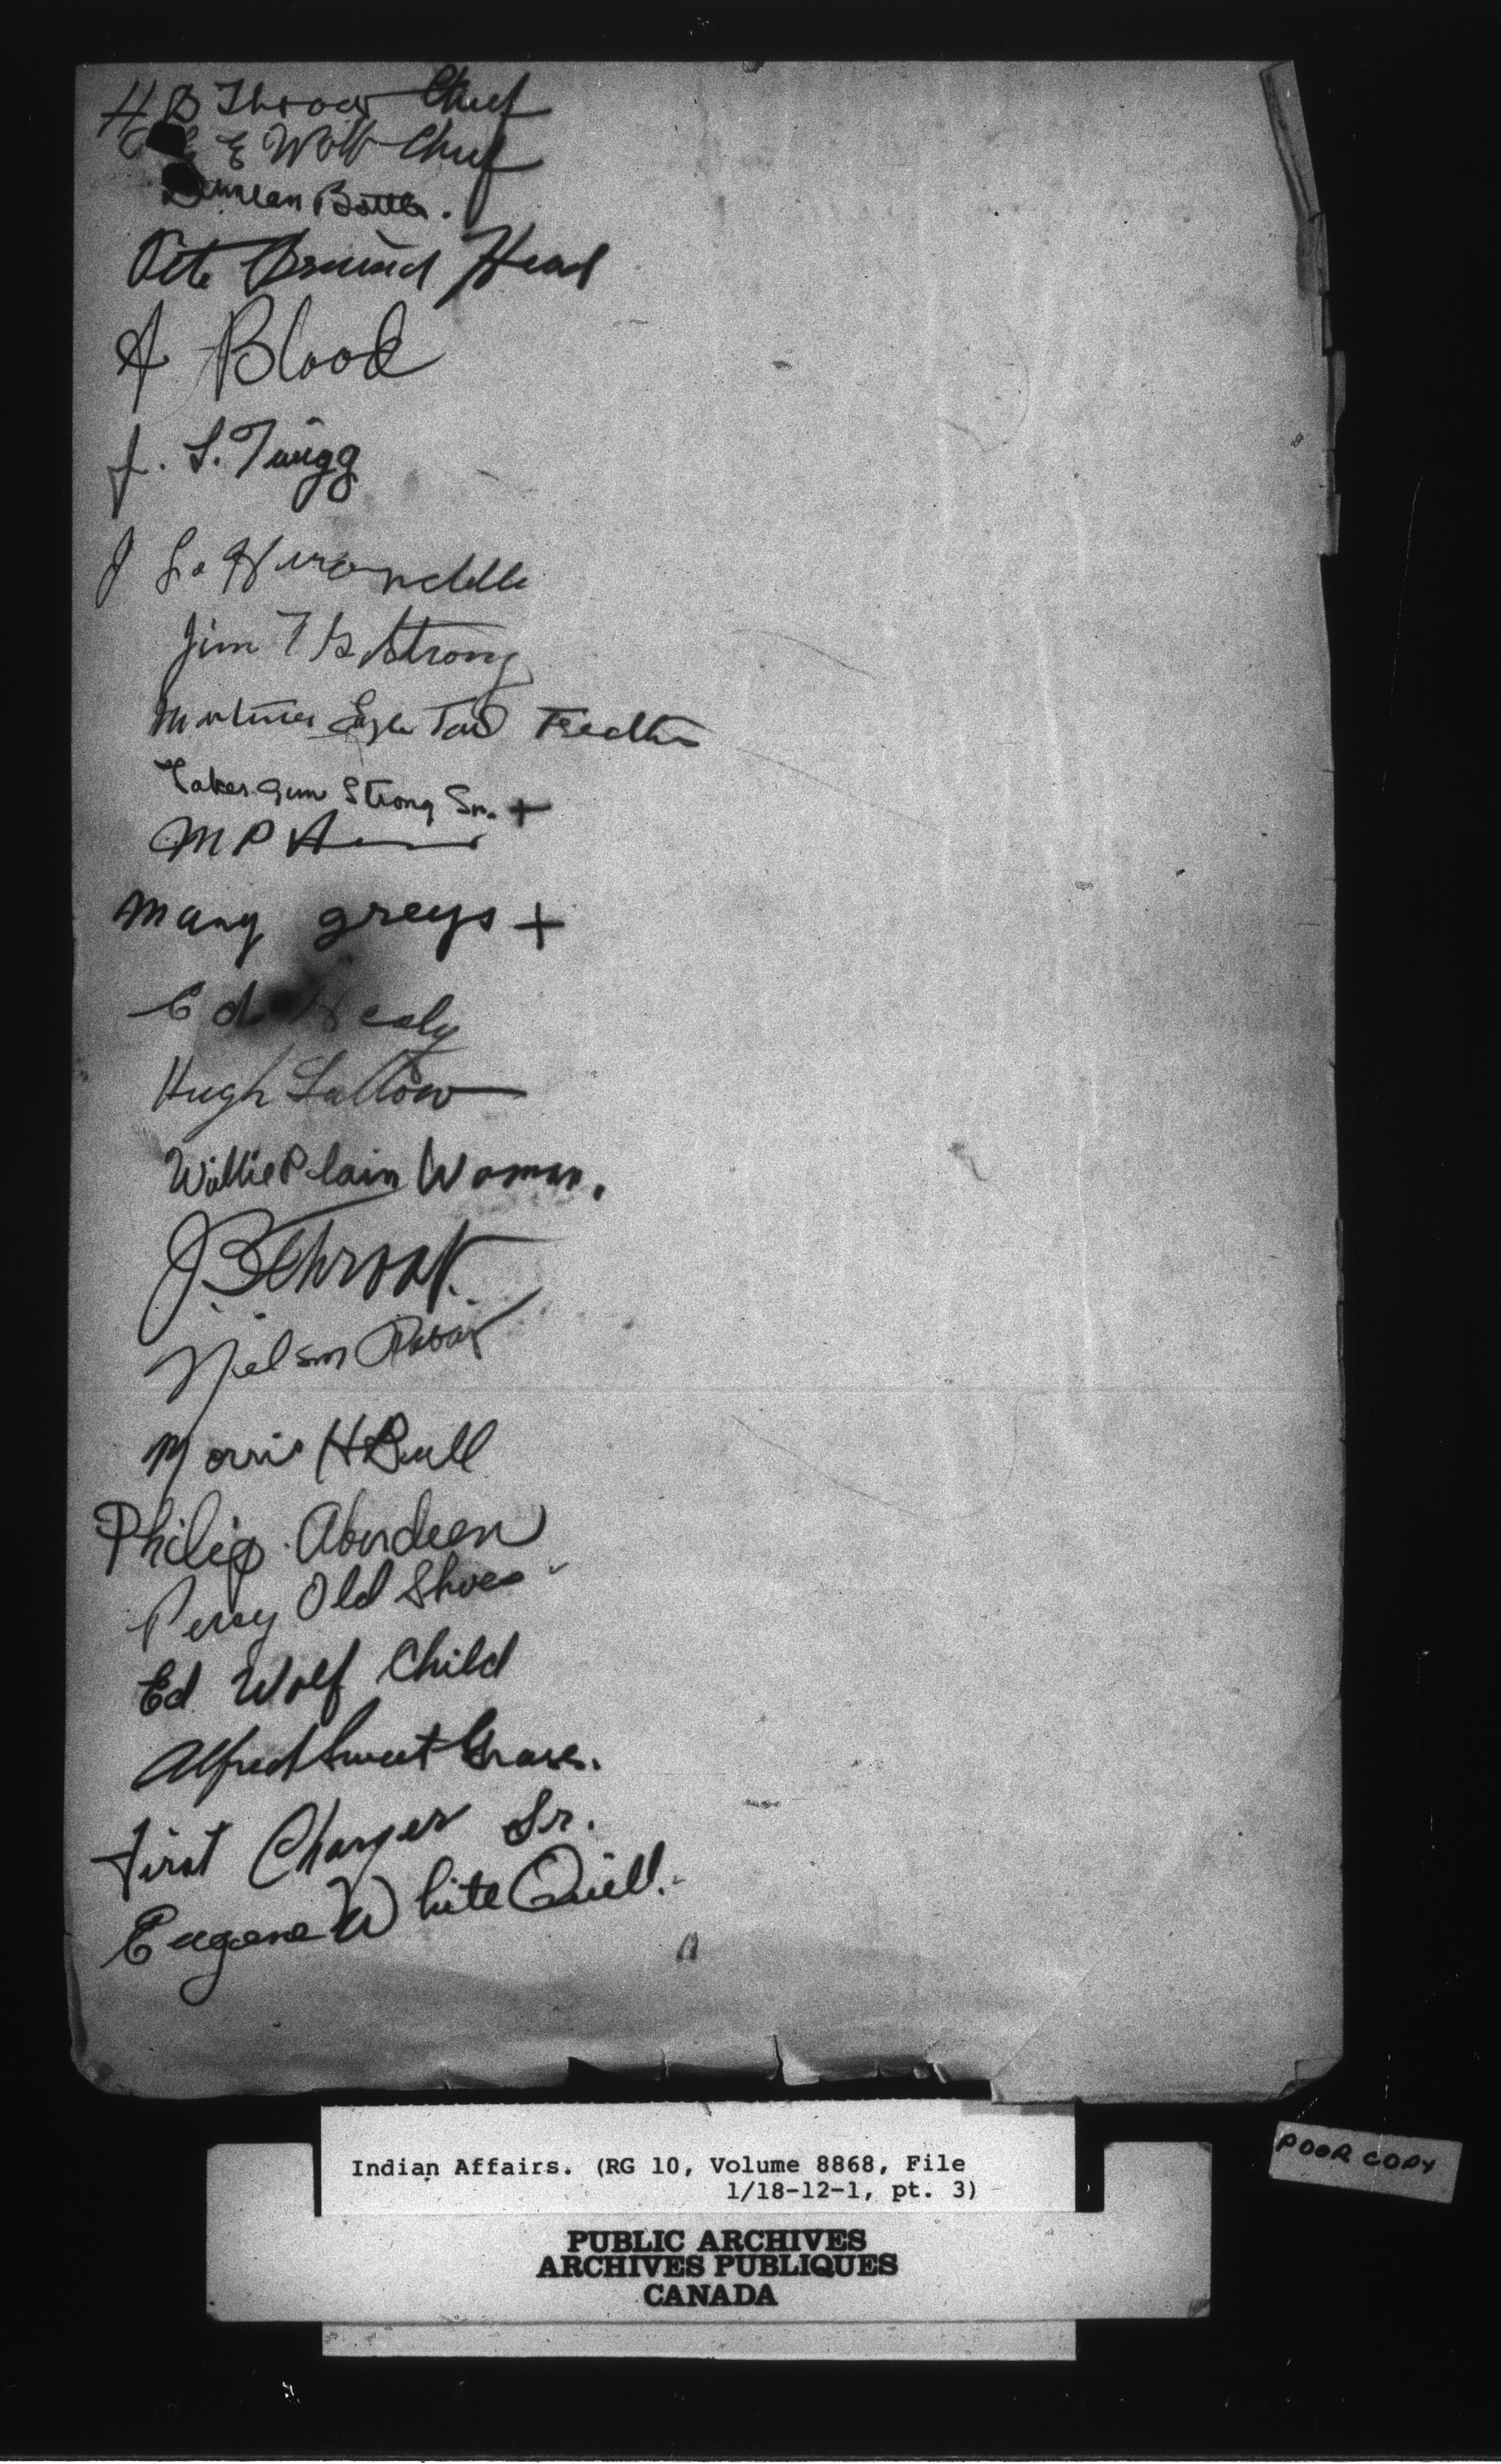 H B Throat Chief
E Wolf Chief
Duncan Bottle.
Pete Brained Head
A Blood
J. L. Twigg
J La Hirondelle
Jim T G Strong
Mortimer Eagle Tail Feather
Takes Gun Strong Sr. +
M P
Many greys +
Ed Healy
Hugh
Willie Plain Woman.
J B Throat.
Nielson
Morris H Bull
Philip Aberdeen
Percy Old Shoes
Ed Wolf Child
Alfred Sweet Grass.
First Charger Sr.
Eugene White Quill.
Indian Affairs. (RG 10, Volume 8868, File
1/18-12-1, pt. 3)
PUBLIC ARCHIVES
ARCHIVES PUBLIQUES
CANADA
POOR COPY